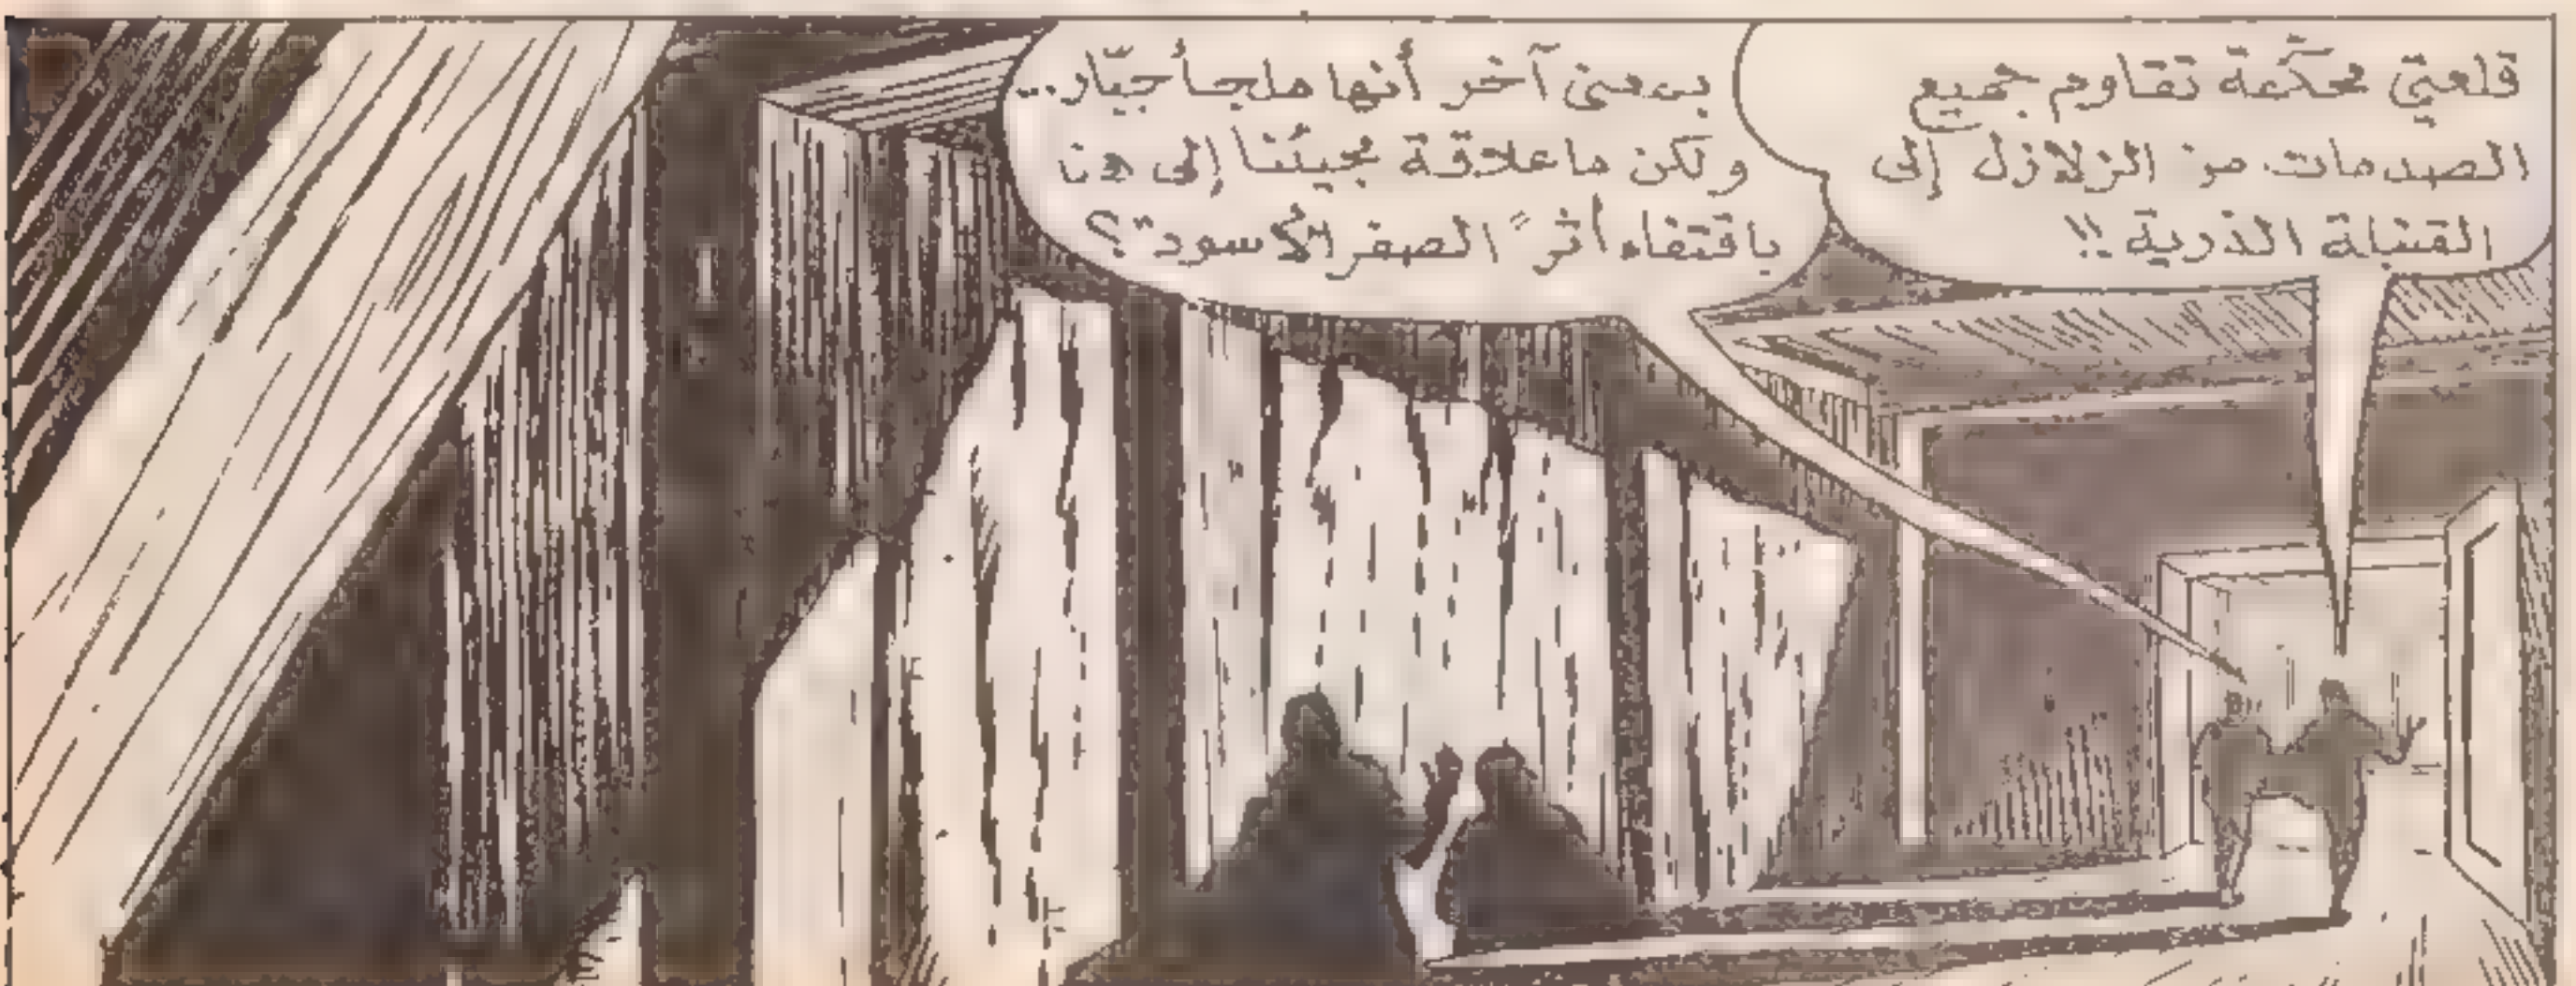 قلعتي محكمة تقاوم جميع
الصدمات من الزلازل إلى
القنبلة الذرية !!
بمعنى آخر أنها ملجأ جبّار...
ولكن ما علاقة مجيئنا إلى هنا
باقتفاء أثر "الصقر الأسود"؟